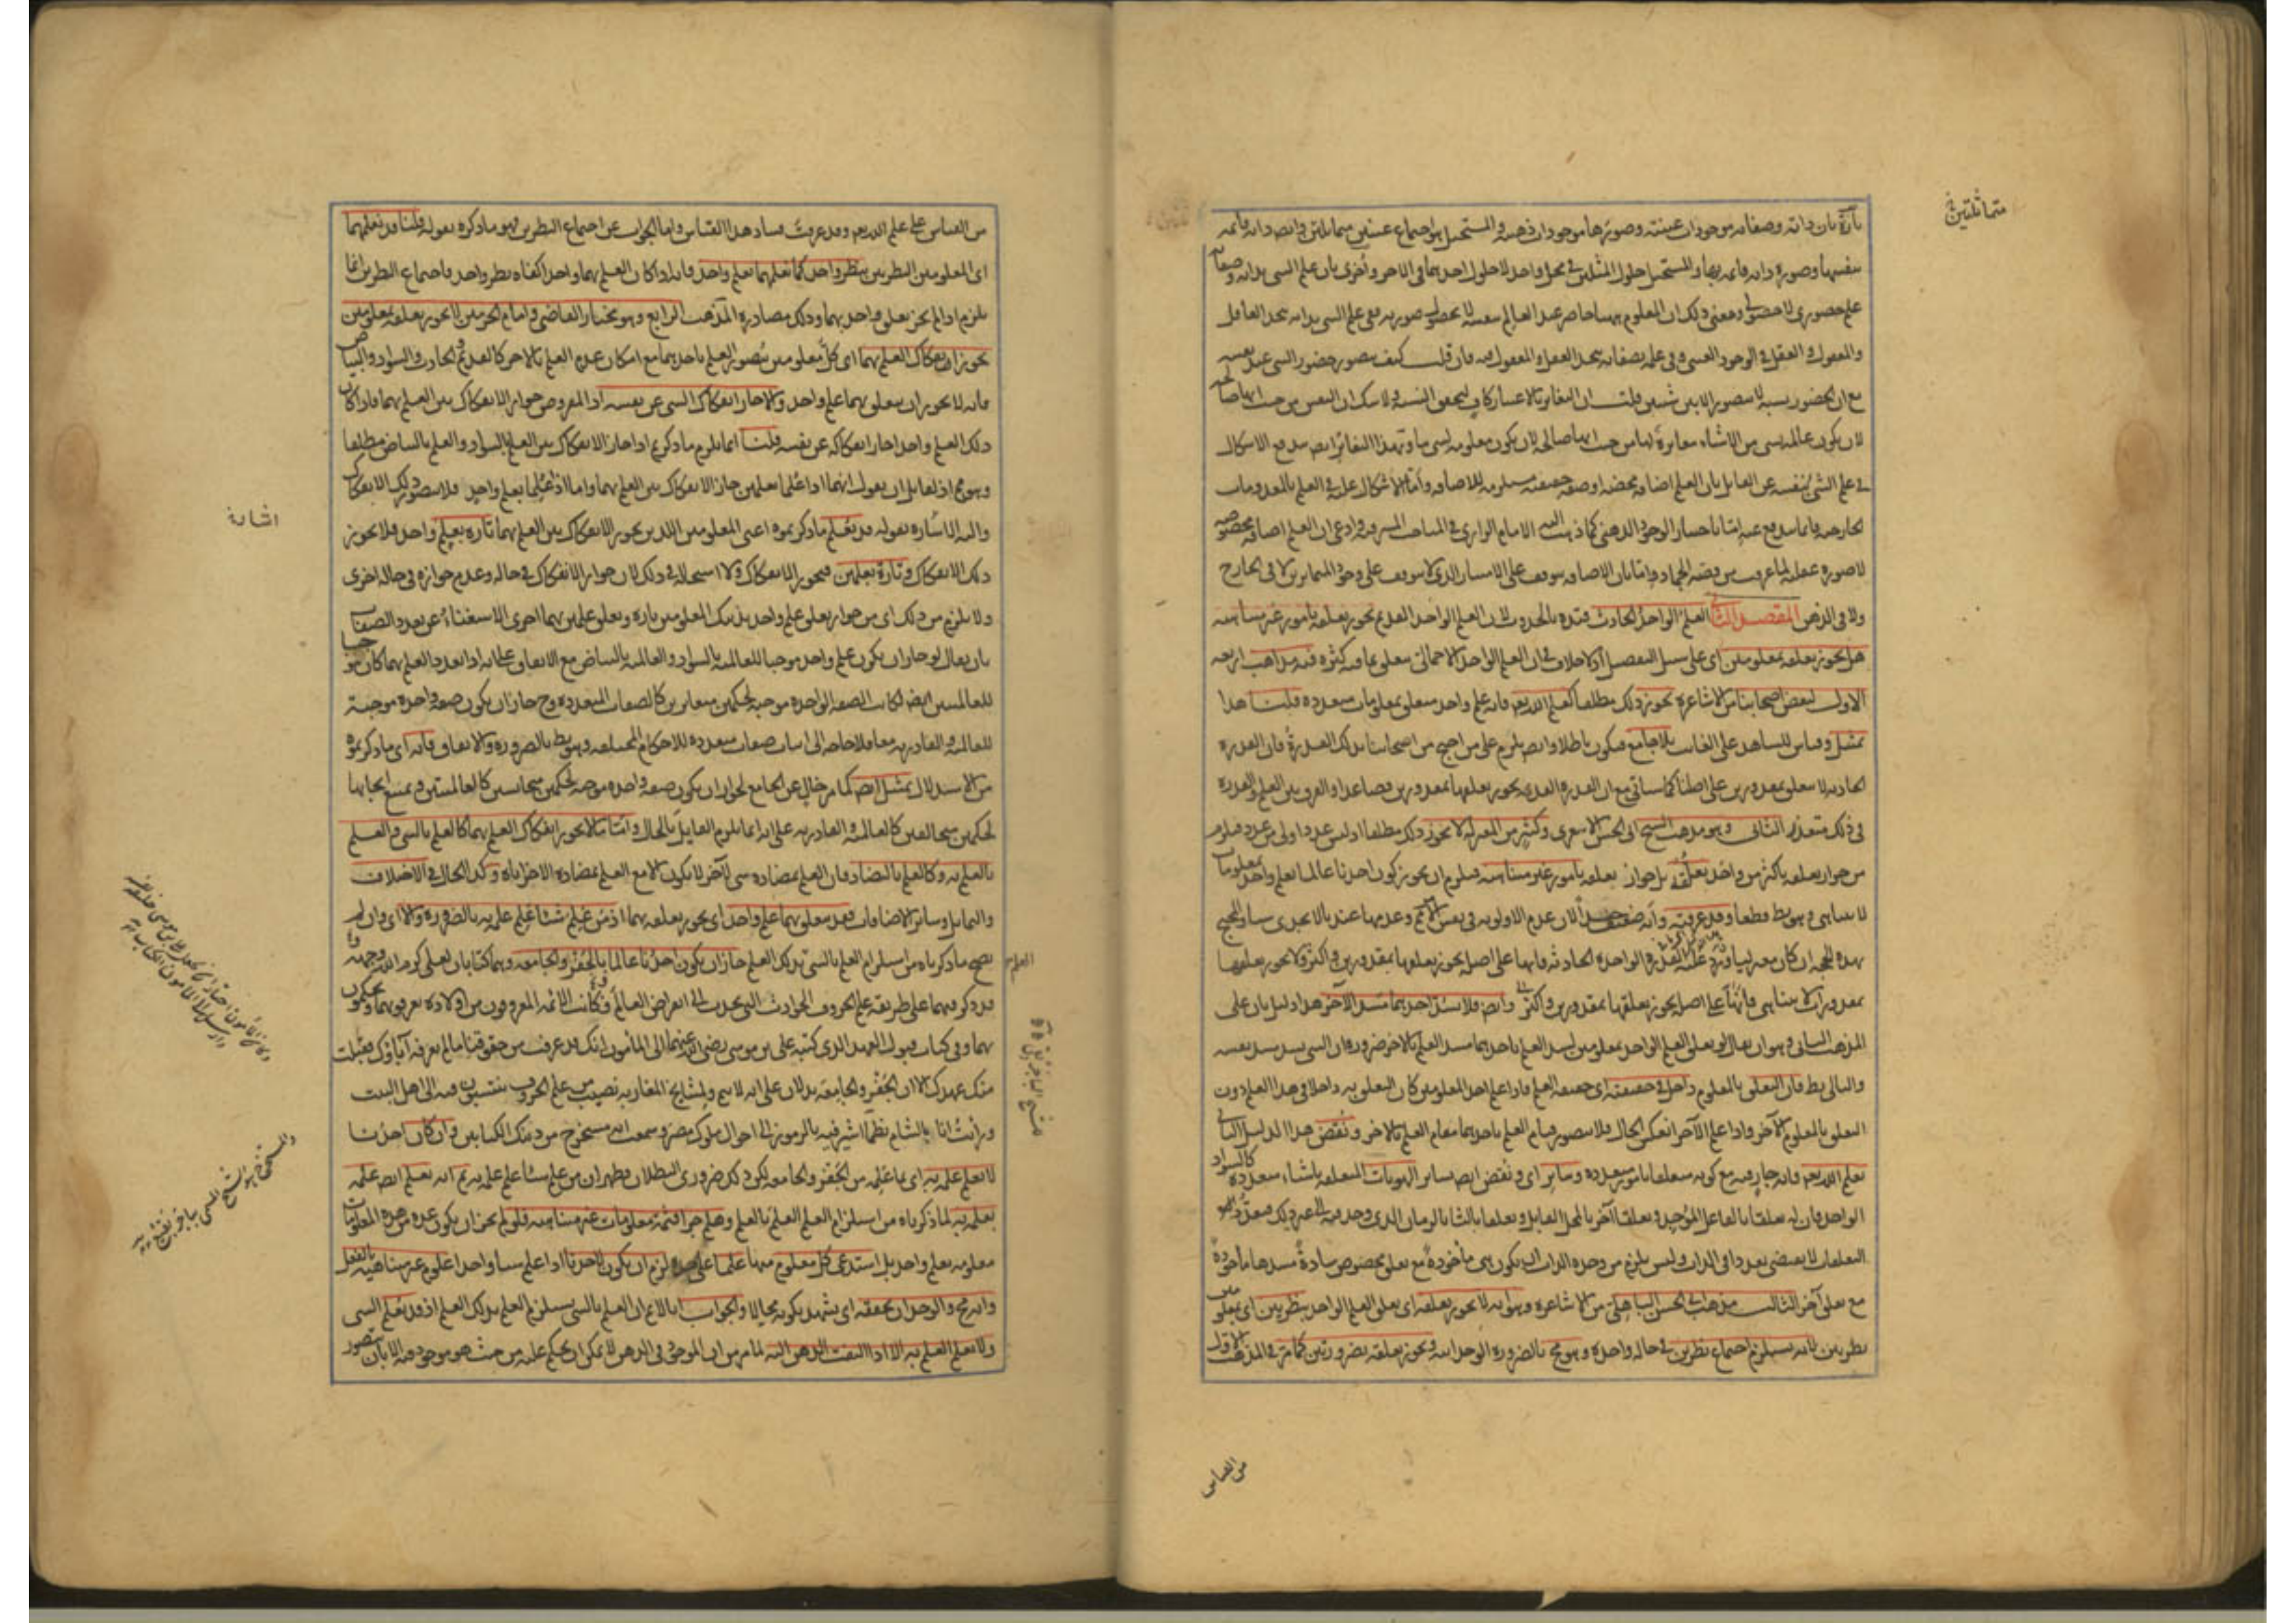 تارة بان ذاته وصفاته موجودات عينية وصورها موجودات ذهنية والمستحيل هو اجتماع عينين متماثلتين وايضا ذاته قائمة
بنفسها وصورة ذاته قائمة بها والمستحيل حلول المثلين في محل واحد لا حلول احدهما في الاخر واخرى بان علم الشي بذاته وصفاته
علم حضوري لا حصولي ومعنى ذلك ان المعلوم ههنا حاضر عند العالم بنفسه لا بحصول صورته ففي علم الشي بذاته يتحد العاقل
والمعقول والعقل في الوجود العيني وفي علمه بصفاته يتحد العقل والمعقول فيه فان قلت كيف يتصور حضور الشي عند نفسه
مع ان الحضور نسبة لا يتصور الا بين شيئين قلت ان التغاير بالاعتبار كاف لتحقق النسبة ولا شك ان النفس من حيث انها صالحة
لان يكون عالمة بشي من الاشياء مغايرة لها من حيث انها صالحة لان يكون معلومة لشي ما وبهذا التغاير ايضا يندفع الاشكال
في علم الشي بنفسه عن القايل بان العلم اضافة محضة او صفة حقيقية مستلزمة للاضافة واما الاشكال عليه في العلم بالمعدومات
الخارجية فانما يندفع عنه اما باختيار الوجود الذهني كما ذهب اليه الامام الرازي في المباحث المشرقية وادعى ان العلم اضافة مخصوصة
لا صورة عقلية لما عرفت من قضية الجماد واما بان الاضافة يتوقف على الامتياز الذي لا يتوقف على وجود المتمايزين لا في الخارج
ولا في الذهن المقصد الثاني العلم الواحد الحادث قيده بالحدوث لان العلم الواحد القديم يجوز تعلقه بامور غير متناهية
هل يجوز تعلقه بمعلومين اي على سبيل التفصيل اذ لا خلاف في ان العلم الواحد الاجمالي يتعلق بما فيه كثرة فيه مذاهب اربعة
الاول لبعض اصحابنا من الاشاعرة يجوز ذلك مطلقا كعلم الله تعالى فانه علم واحد متعلق بمعلومات متعددة قلنا هذا
تمثيل وقياس للشاهد على الغايب بلا جامع فيكون باطلا وايضا يلزم على من احتج من اصحابنا بذلك القدرة فان القدرة
الحادثة لا يتعلق بمقدورين على اصلنا كما سيأتي مع ان القدرة القديمة يجوز تعلقها بمقدورين فصاعدا والفرق بين العلم والقدرة
في ذلك متعذر الثاني وهو مذهب الشيخ ابي الحسن الاشعري وكثير من المعتزلة لا يجوز ذلك مطلقا اذ ليس عدد اولى من عدد فيلزم
من جواز تعلقه باكثر من واحد تعلقه بل جواز تعلقه بامور غير متناهية فيلزم ان يجوز كون احدنا عالما بعلم واحد بمعلومات
لا يتناهى وهو بط قطعا وقد عرفته وانه ضعيف جدا لان عدم الاولوية في نفس الامر مم وعدمها عندنا لا يجدي
بهذه الحجة ان كان معتزليا ويرد عليه القدرة الواحدة الحادثة فانها على اصله يجوز تعلقها بمقدورين واكثر ولا يجوز تعلقها
بمقدورات لا يتناهى فانها على اصله يجوز تعلقها بمقدورين واكثر وايضا فلا يسد احدهما مسد الآخر هذا دليل ثان على
المذهب الثاني وهو ان يقال لو تعلق العلم الواحد بمعلومين لسد العلم باحدهما مسد العلم بالاخر ضرورة ان الشي يسد مسد نفسه
والتالي بط فان التعلق بالمعلوم داخل في حقيقته اي حقيقة العلم فاذا علم احد المعلومين كان التعلق به داخلا في هذا العلم دون
التعلق بالمعلوم الآخر واذا علم الآخر انعكس الحال فلا يتصور قيام العلم باحدهما مقام العلم بالاخر ونقض هذا الدليل الثاني
بعلم الله تعالى فانه جار فيه مع كونه متعلقا بامور متعددة وساير اي ونقض ايضا بساير الهويات المتعلقة باشياء متعددة كالسواد
الواحد فان له تعلقا بالفاعل الموجد وتعلقا آخر بالمحل القابل وتعلقا ثالثا بالزمان الذي وجد فيه الى غير ذلك فتعدد
التعلقات لا يقتضي تعددا في الذات وليس يلزم من وحدة الذات ان يكون هي مأخودة مع تعلق مخصوص سادة مسدها مأخوذة
مع تعلق آخر الثالث مذهب ابي الحسن الباهلي من الاشاعرة وهو انه لا يجوز تعلقه اي تعلق العلم الواحد بنظريين اي بمعلومين
نظريين لانه يستلزم اجتماع نظرين في حالة واحدة وهو مح بالضرورة الوجدانية ويجوز تعلقه بضروريين كما مر في المذهب الاول
متماثلتين
من القياس
من القياس على علم الله تعالى وقد عرفت فساد هذا القياس واما الجواب عن اجتماع النظرين فهو ما ذكره بقوله قلنا قد نعلمهما
اي المعلومين النظريين بنظر واحد كما نعلمهما بعلم واحد فانه اذا كان العلم بهما واحدا كفاه نظر واحد فاجتماع النظرين انما
يلزم اذا لم يجز تعلق واحد بهما وذلك مصادرة المذهب الرابع وهو مختار القاضي وامام الحرمين لا يجوز تعلقه بمعلومين
يجوز انفكاك العلم بهما اي كل معلومين يتصور العلم باحدهما مع امكان عدم العلم بالاخر كالقديم والحادث والسواد والبياض
فانه لا يجوز ان يتعلق بهما علم واحد والا جاز انفكاك الشي عن نفسه اذ المفروض جواز الانفكاك بين العلم بهما فاذا كان
ذلك العلم واحدا جاز انفكاكه عن نفسه قلنا انما يلزم ما ذكرتم اذا جاز الانفكاك بين العلم بالسواد والعلم بالبياض مطلقا
وهو مم اذ لقايل ان يقول انهما اذا علما بعلمين جاز الانفكاك بين العلم بهما واما اذا علما بعلم واحد فلا يتصور ذلك الانفكاك
واليه الاشارة بقوله قد يعلم ما ذكرتموه اعني المعلومين اللذين يجوز الانفكاك بين العلم بهما تارة بعلم واحد فلا يجوز
ذلك الانفكاك وتارة بعلمين فيجوز الانفكاك ولا استحالة في ذلك لان جواز الانفكاك في حالة وعدم جوازه في حالة اخرى
ولا يلزم من ذلك اي من جواز تعلق علم واحد بذينك المعلومين تارة وتعلق علمين بهما اخرى الاستغناء عن تعدد الصفات
بان يقال لو جاز ان يكون علم واحد موجبا للعالمية بالسواد والعالمية بالبياض مع الاتفاق على انه اذا تعدد العلم بهما كان موجبا
للعالميتين ايضا لكانت الصفة الواحدة موجبة لحكمين متغايرين كالصفات المتعددة وح جاز ان يكون صفة واحدة موجبة
للعالمية والقادرية معا فلا حاجة الى اثبات صفات متعددة للاحكام المختلفة وهو بط بالضرورة والاتفاق فانه اي ما ذكرتموه
من الاستدلال تمثيل ايضا كما مر خال عن الجامع لجواز ان يكون صفة واحدة موجبة لحكمين متجانسين كالعالميتين ويمتنع ايجابها
لحكمين متخالفين كالعالمية والقادرية على انه انما يلزم القايل بالحال واما ما لا يجوز انفكاك العلم بهما كالعلم بالشي والعلم
بالعلم به وكالعلم بالتضاد فان العلم بمضادة شي لآخر لا يكون الا مع العلم بمضادة الاخر اياه وكذا الحال في الاختلاف
والتماثل وساير الاضافات فقد يتعلق بهما علم واحد اي يجوز تعلقه بهما اذ من علم شيئا علم علمه به بالضرورة والا اي وان لم
يصح ما ذكرناه من استلزام العلم بالشي بذلك العلم جاز ان يكون احدنا عالما بالجفر والجامعة وهما كتابان لعلي كرم الله وجهه
قد ذكر فيهما على طريقة علم الحروف الحوادث التي تحدث الى انقراض العالم وكانت الائمة المعروفون من اولاده يعرفونهما ويحكمون
بهما وفي كتاب قبول العهد الذي كتبه علي بن موسى رضي الله عنهما الى المأمون انك قد عرفت من حقوقنا ما لم يعرفه آباؤك فقبلت
منك عهدك الا ان الجفر والجامعة يدلان على انه لا يتم ولمشايخ المغاربة نصيب من علم الحروف ينتسبون فيه الى اهل البيت
ورأيت انا بالشام نظما اشير فيه بالرموز الى احوال ملوك مصر وسمعت انه مستخرج من ذينك الكتابين وان كان احدنا
لا يعلم علمه به اي بما علمه من الجفر والجامعة لكن ذلك ضروري البطلان فظهر ان من علم شيئا علم علمه به ثم انه يعلم ايضا علمه
بعلمه به لما ذكرناه من استلزام العلم العلم بالعلم وهلم جرا فثمة معلومات غير متناهية فلو لم يجز ان يكون عدة من هذه المعلومات
معلومة بعلم واحد بل استدعى كل معلوم منها علما على حدة لزم ان يكون لاحدنا اذا علم شيئا واحدا علوم غير متناهية بالفعل
وانه مح والوجدان يحققه اي يشهد بكونه محالا والجواب انا لا نم ان العلم بالشي يستلزم العلم بذلك العلم اذ قد يعلم الشي
ولا يعلم العلم به الا اذا التفت الذهن اليه لما مر من ان الموجود في الذهن لا يمكن ان يحكم عليه من حيث هو موجود فيه الا بان يتصور
اشارة
العلم